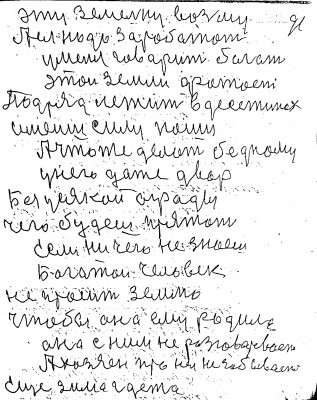 эту землену возму
91
Пел нодр заробатот
умеи гаварит богат
этои земли
Подряд летит вдесетинах
имеии силу паши
Ачтоже делат бедному
унего даже двар
Без усякои аграды
чего будеш прятат
если ничего не знаеш
Багатои человек
не просит землю
чтобы она ему радила
она сним не разговаривает
Ахозяен про неи незабывает
еще зима гдета